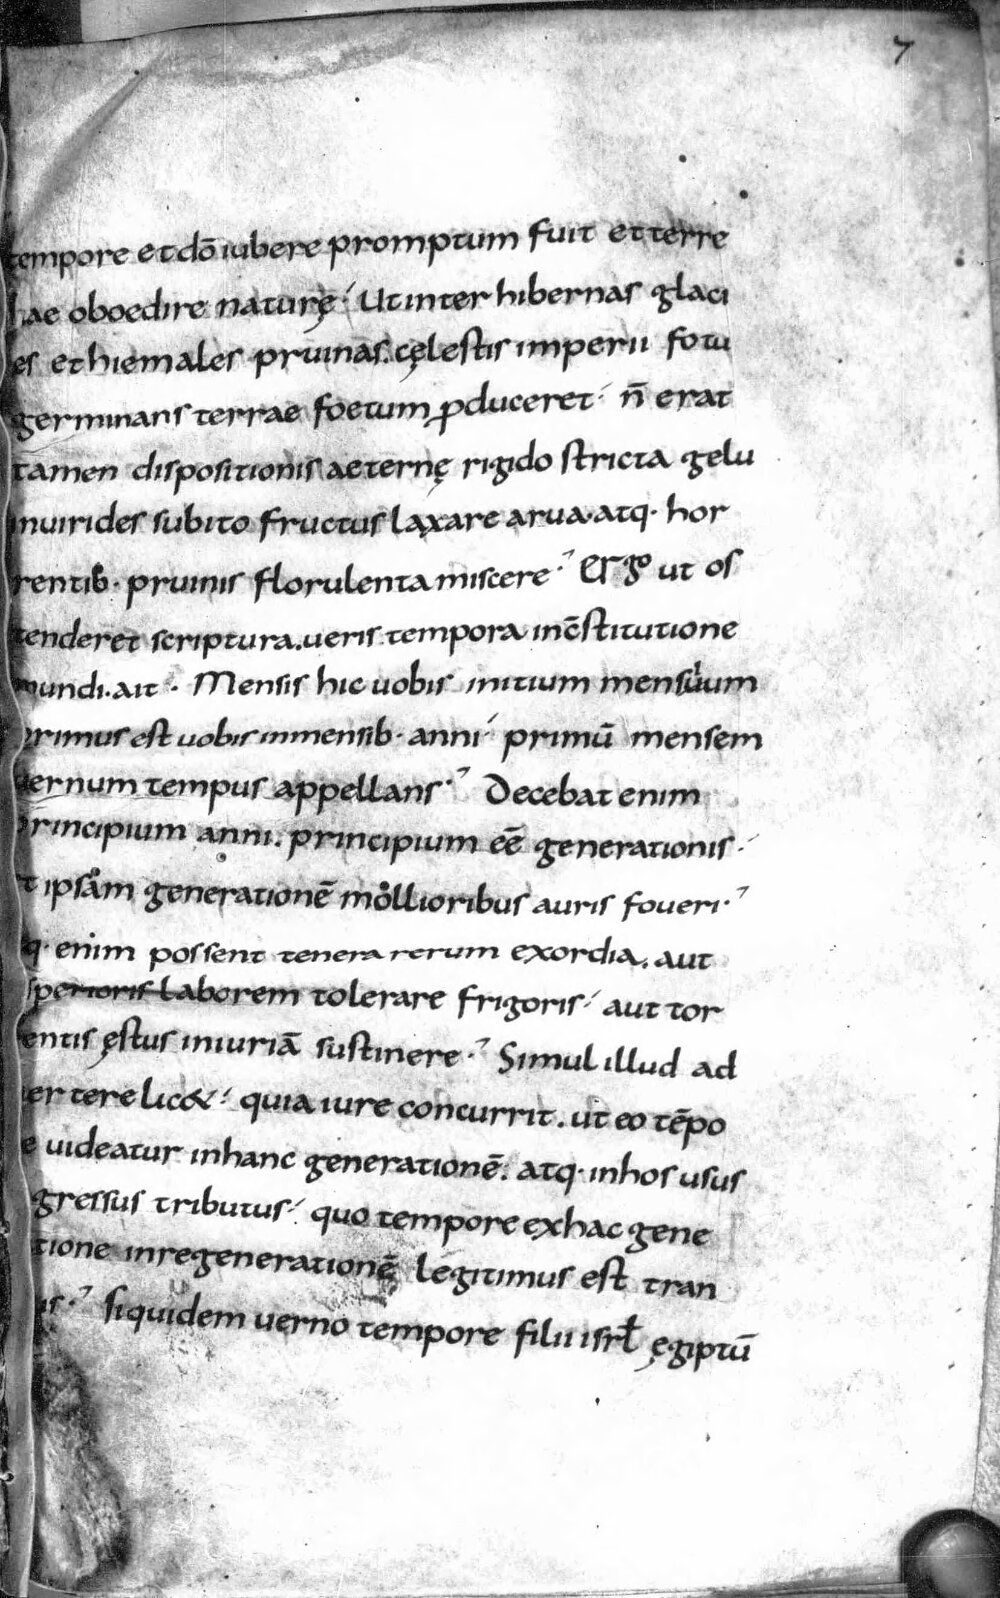 7
tempore et dō iubere promptum fuit et terre
hae oboedire naturę. Ut inter hibernas glaci
es et hiemales pruinas. cęlestis imperii fotu
germinans terrae foetum ꝓduceret. n̄ erat
tamen dispositionis aeternę rigido stricta gelu
inuirides subito fructus laxare arua. atq· hor
rentib· pruinis florulenta miscere. Ergo ut os
tenderet scriptura. ueris tempora in c̄stitutione
mundi. ait. Mensis hic uobis initium mensuum
primus est uobis in mensib· anni. primū mensem
uernum tempus appellans. Decebat enim
principium anni. principium eē generationis.
et ipsam generationē mollioribus auris foueri.
q· enim possent tenera rerum exordia. aut
sperioris laborem tolerare frigoris. aut tor
entis ęstus iniuriā sustinere. Simul illud ad
er tere lic&. quia iure concurrit. ut eo tēpo
e uideatur in hanc generationē. atq· in hos usus
gressus tributus. quo tempore ex hac gene
tione in regenerationē legitimus est tran
us. siquidem uerno tempore filii isrł ęgiptū